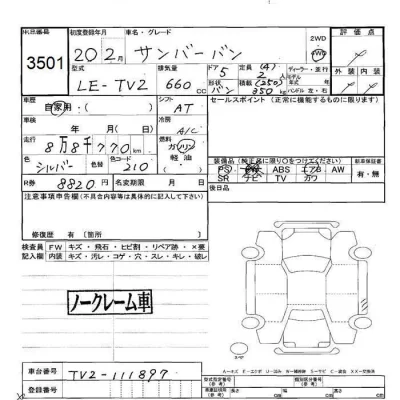 出品番号 初度登録年月 車名・グレード 評価点
3501 20 2月 サンバーバン 2WD 4WD
型式 排気量 ドア 定員(4) ディーラー・並行
LE-TV2 660cc 5 2人 モデル 年
外装 内装
形状 積載(250) ハンドル 左・右
バン 350kg
車歴 シフト セールスポイント(正常に機能するものに限ります)
自家用・( ) AT
車検 冷房
年 月( 日) A/C
走行 燃料
8万8千770km ガソリン 軽油
装備品(純正品に限り○をつけてください) 新車保証書
色 色替 色コード
シルバー 210
PS PW ABS エアB AW 有・無
SR ナビ TV カワ
R券 8820円 名変期限 月 日 後日品
注意事項申告欄(不具合内容等は具体的に記入して下さい)
修復歴 有〔箇所 〕
検査員 FW キズ・飛石・ヒビ割・リペア跡・×要
記入欄 内装 キズ・汚レ・コゲ・穴・スレ・キレ・破レ
ノークレーム車
車台番号 TV2-111897
登録番号
型式指定番号(参考) 類別区分番号(参考)
長さ cm 幅 cm 高さ cm